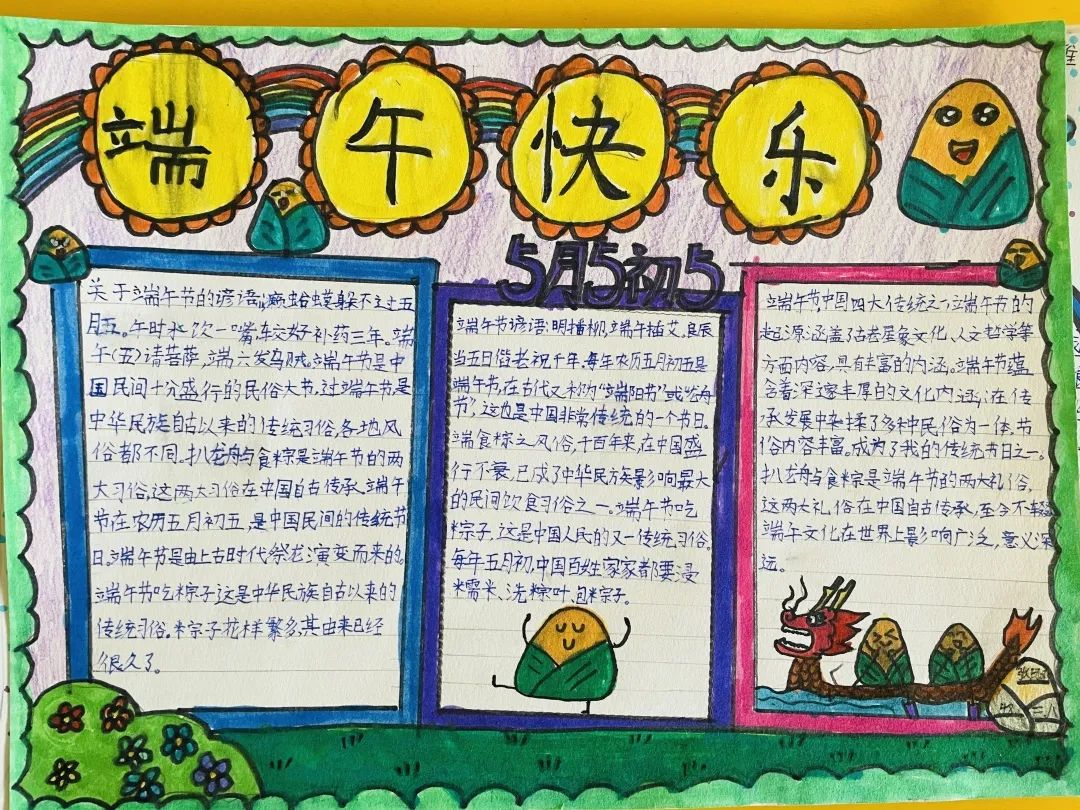 端午快乐
5月5初5
关于端午节的谚语:癞蛤蟆躲不过五
月五。午时水饮一嘴,较好补药三年。端
午(五)请菩萨,端六发乌贼。端午节是中
国民间十分盛行的民俗大节,过端午节是
中华民族自古以来的传统习俗,各地风
俗都不同。扒龙舟与食粽是端午节的两
大习俗,这两大习俗在中国自古传承。端午
节在农历五月初五,是中国民间的传统节
日。端午节是由上古时代祭龙演变而来的。
端午节吃粽子这是中华民族自古以来的
传统习俗。粽子花样繁多,其由来已经
很久了。
端午节谚语:明插柳,端午插艾,良辰
当五日偕老祝千年。每年农历五月初五是
端午节,在古代又称为“端阳节”或“龙舟
节”,这也是中国非常传统的一个节日。
端食粽之风俗,千百年来,在中国盛
行不衰,已成了中华民族影响最大
的民间饮食习俗之一。端午节吃
粽子,这是中国人民的又一传统习俗。
每年五月初,中国百姓家家都要浸
糯米、洗粽叶、包粽子。
端午节,中国四大传统之一,端午节的
起源涵盖了古老星象文化、人文哲学等
方面内容,具有丰富的内涵。端午节蕴
含着深邃丰厚的文化内涵;在传
承发展中杂揉了多种民俗为一体,节
俗内容丰富。成为了我的传统节日之一。
扒龙舟与食粽是端午节的两大礼俗,
这两大礼俗在中国自古传承,至今不辍
端午文化在世界上影响广泛,意义深
远。